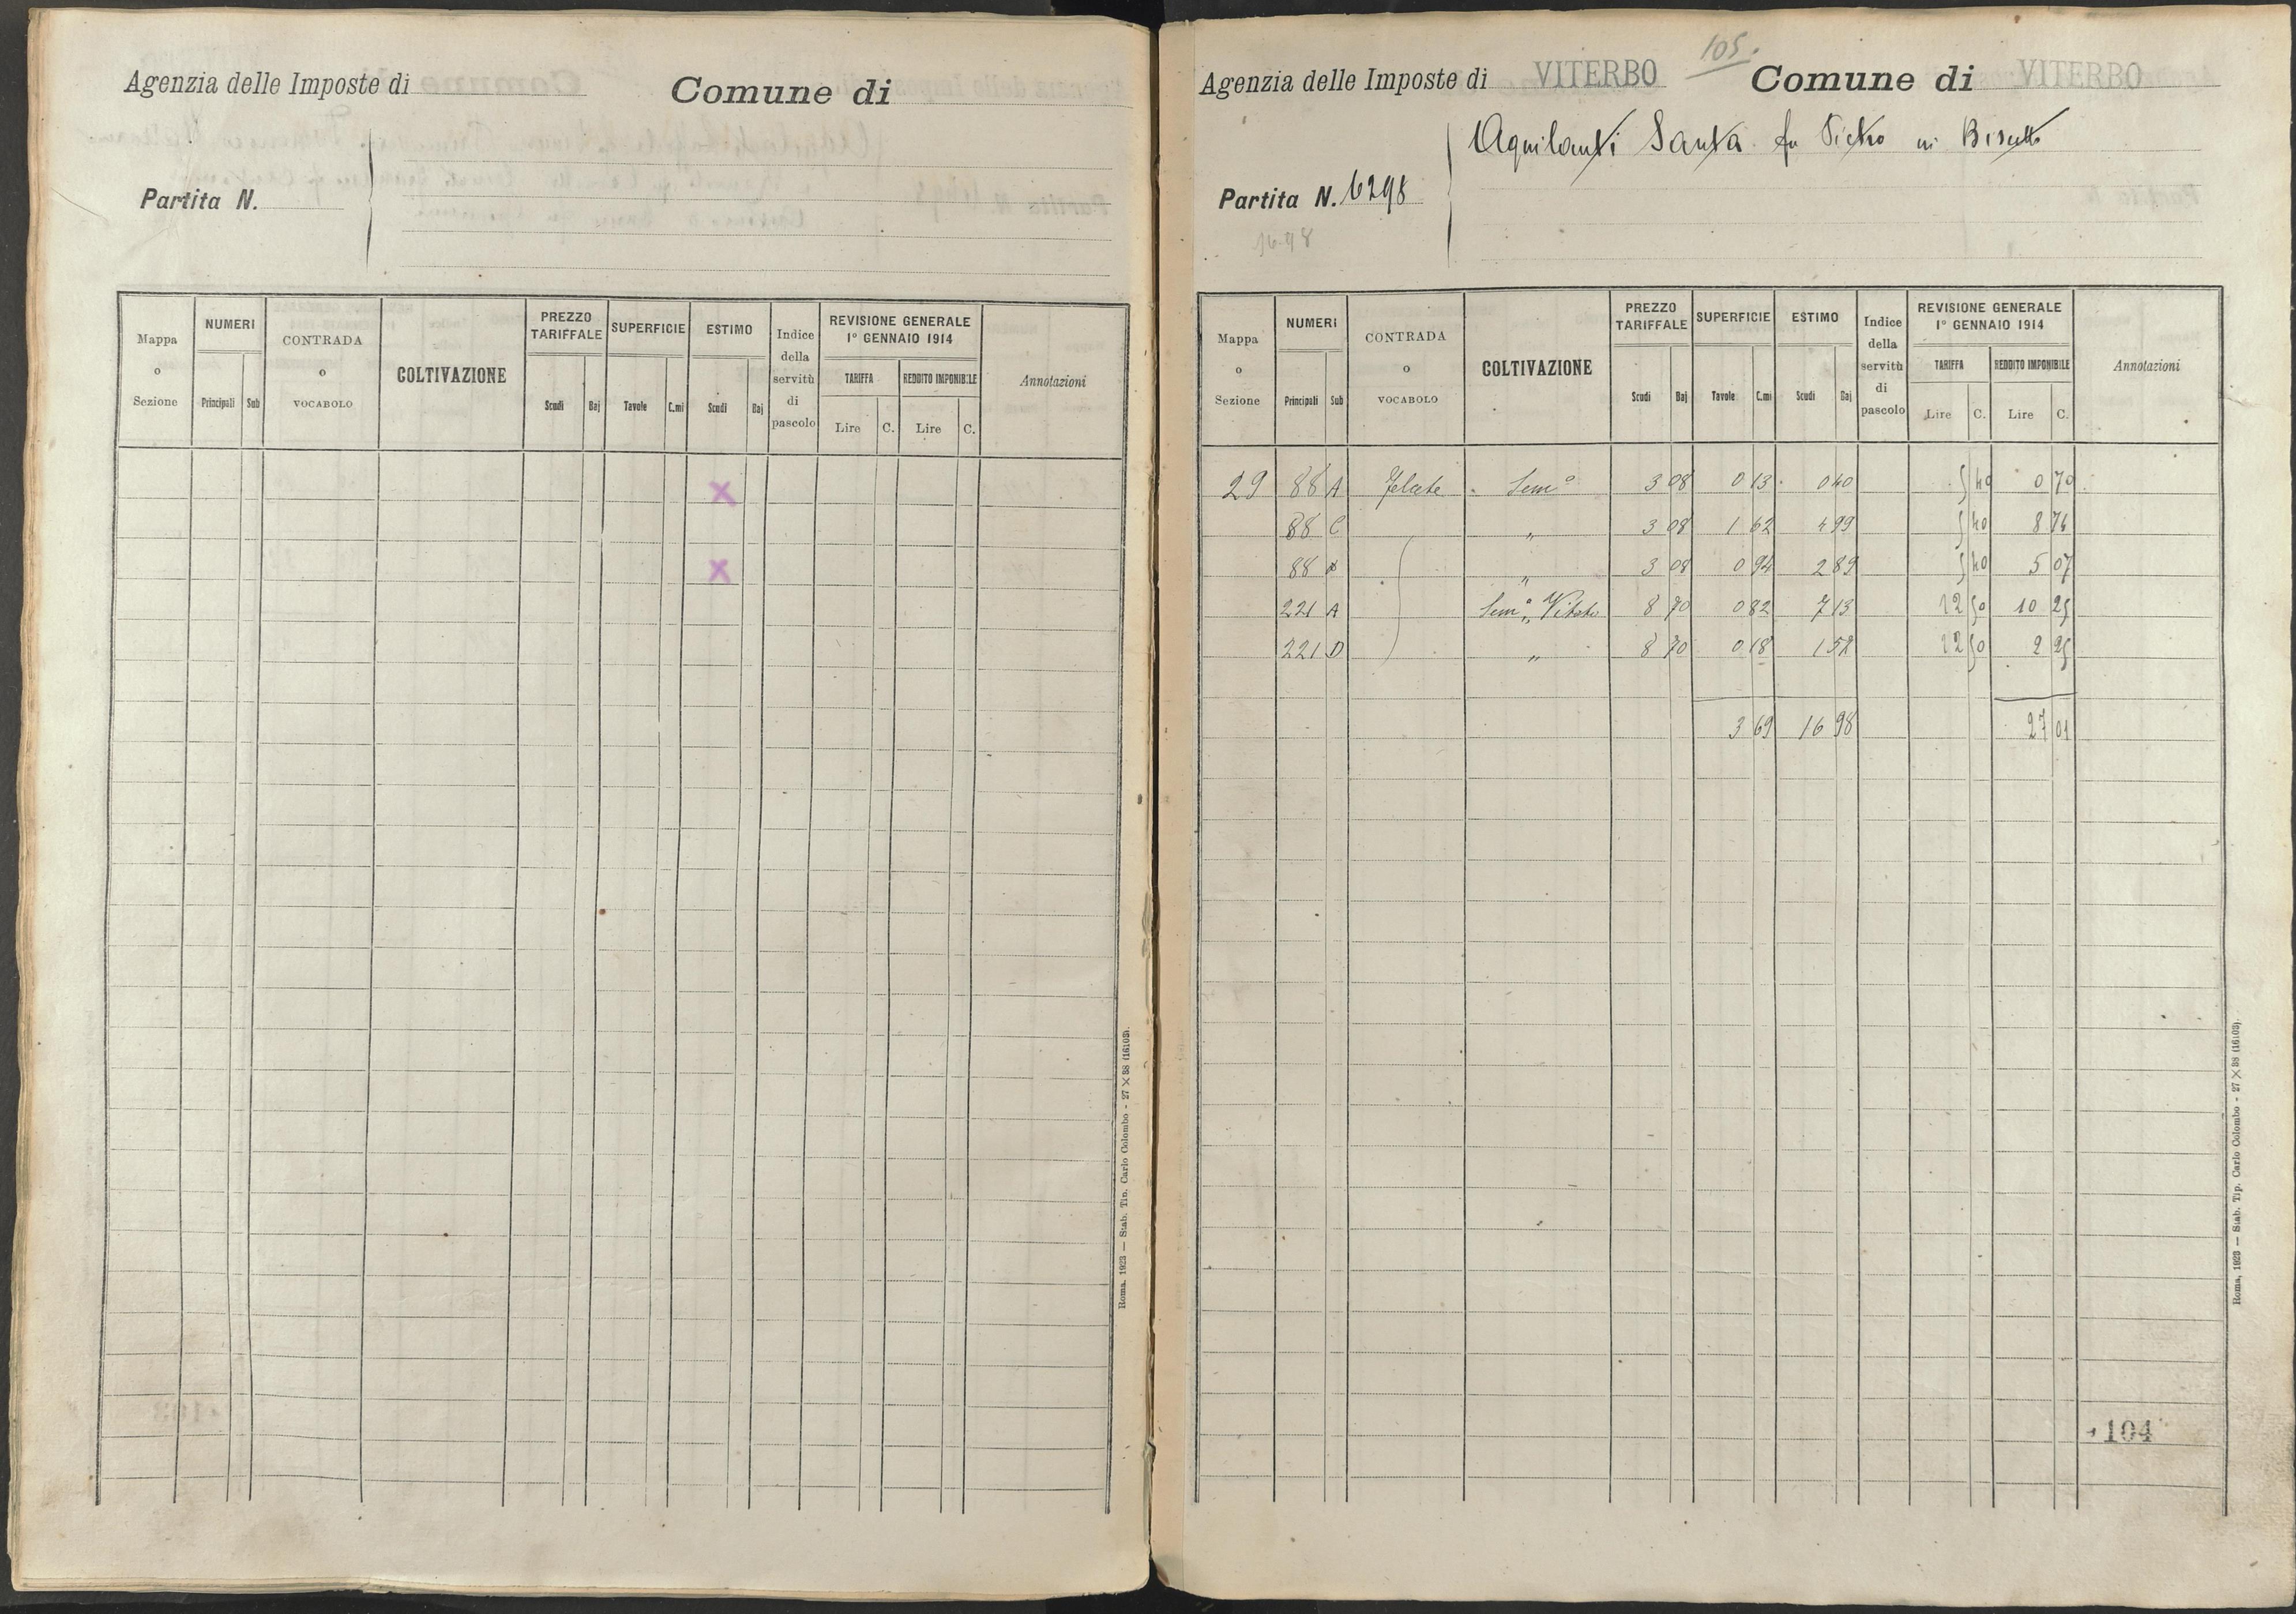 Agenzia delle Imposte di
Comune di
Partita N.
Mappa o Sezione
NUMERI
Principali Sub
CONTRADA o VOCABOLO
COLTIVAZIONE
PREZZO TARIFFALE
Scudi Baj
SUPERFICIE
Tavole C.mi
ESTIMO
Scudi Baj
Indice della servitù di pascolo
REVISIONE GENERALE
1º GENNAIO 1914
TARIFFA
Lire C.
REDDITO IMPONIBILE
Lire C.
Annotazioni
X
X
Roma, 1923 — Stab. Tip. Carlo Colombo - 27 X 38 (16103).
105.
Agenzia delle Imposte di VITERBO Comune di VITERBO
Aquilanti Santa fu Pietro in
Partita N. 6298
Mappa o Sezione
NUMERI
Principali Sub
CONTRADA o VOCABOLO
COLTIVAZIONE
PREZZO TARIFFALE
Scudi Baj
SUPERFICIE
Tavole C.mi
ESTIMO
Scudi Baj
Indice della servitù di pascolo
REVISIONE GENERALE
1º GENNAIO 1914
TARIFFA
Lire C.
REDDITO IMPONIBILE
Lire C.
Annotazioni
29 88 A Semº 3 08 0 13 0 40 5 40 0 70
88 C " 3 08 1 62 4 99 5 40 8 74
88 " 3 08 0 94 2 89 5 40 5 07
221 A Semº Vitato 8 70 0 82 7 13 12 50 10 25
221 D " 8 70 0 18 1 57 12 50 2 25
3 69 16 98 27 01
104
Roma, 1923 — Stab. Tip. Carlo Colombo - 27 X 38 (16103).